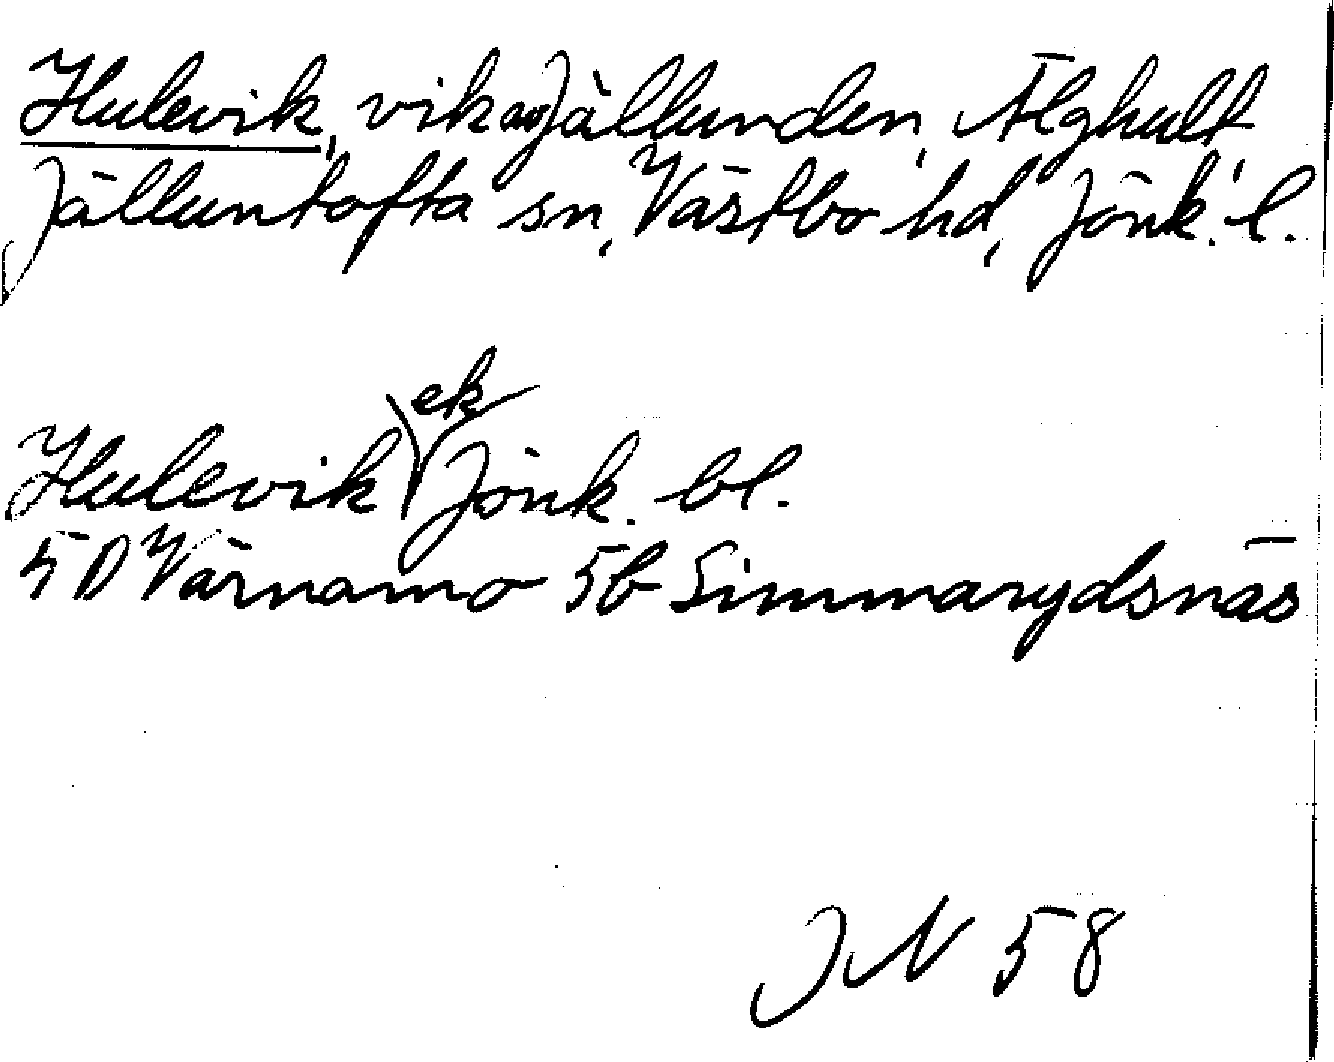 Hulevik, vik av Jällunden, Älghult,
Jälluntofta sn, Västbo hd, Jönk. l.
Hulevik ek Jönk. bl.
5D Värnamo 5b Simmarydsnäs
JN 58